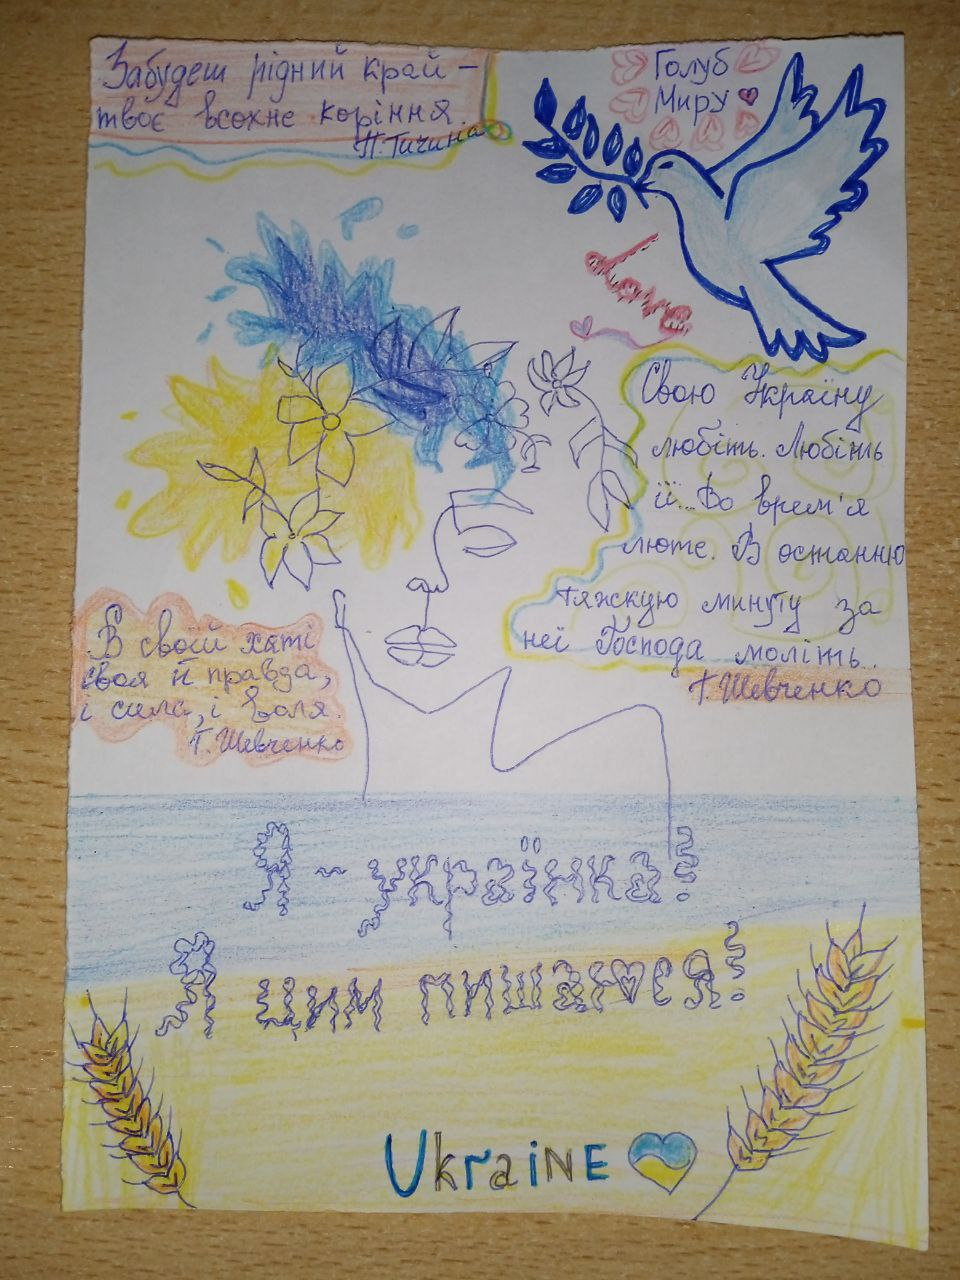 Забудеш рідний край –
твоє всохне коріння.
П. Тичина
Голуб
Миру
Love
Свою Україну
любіть. Любіть
її... Во врем'я
люте. В останню
тяжкую минуту за
неї Господа моліть..
Т. Шевченко
В своїй хаті
своя й правда,
і сила, і воля.
Т. Шевченко
Я - українка!
Я цим пишаюся!
UkraiNE